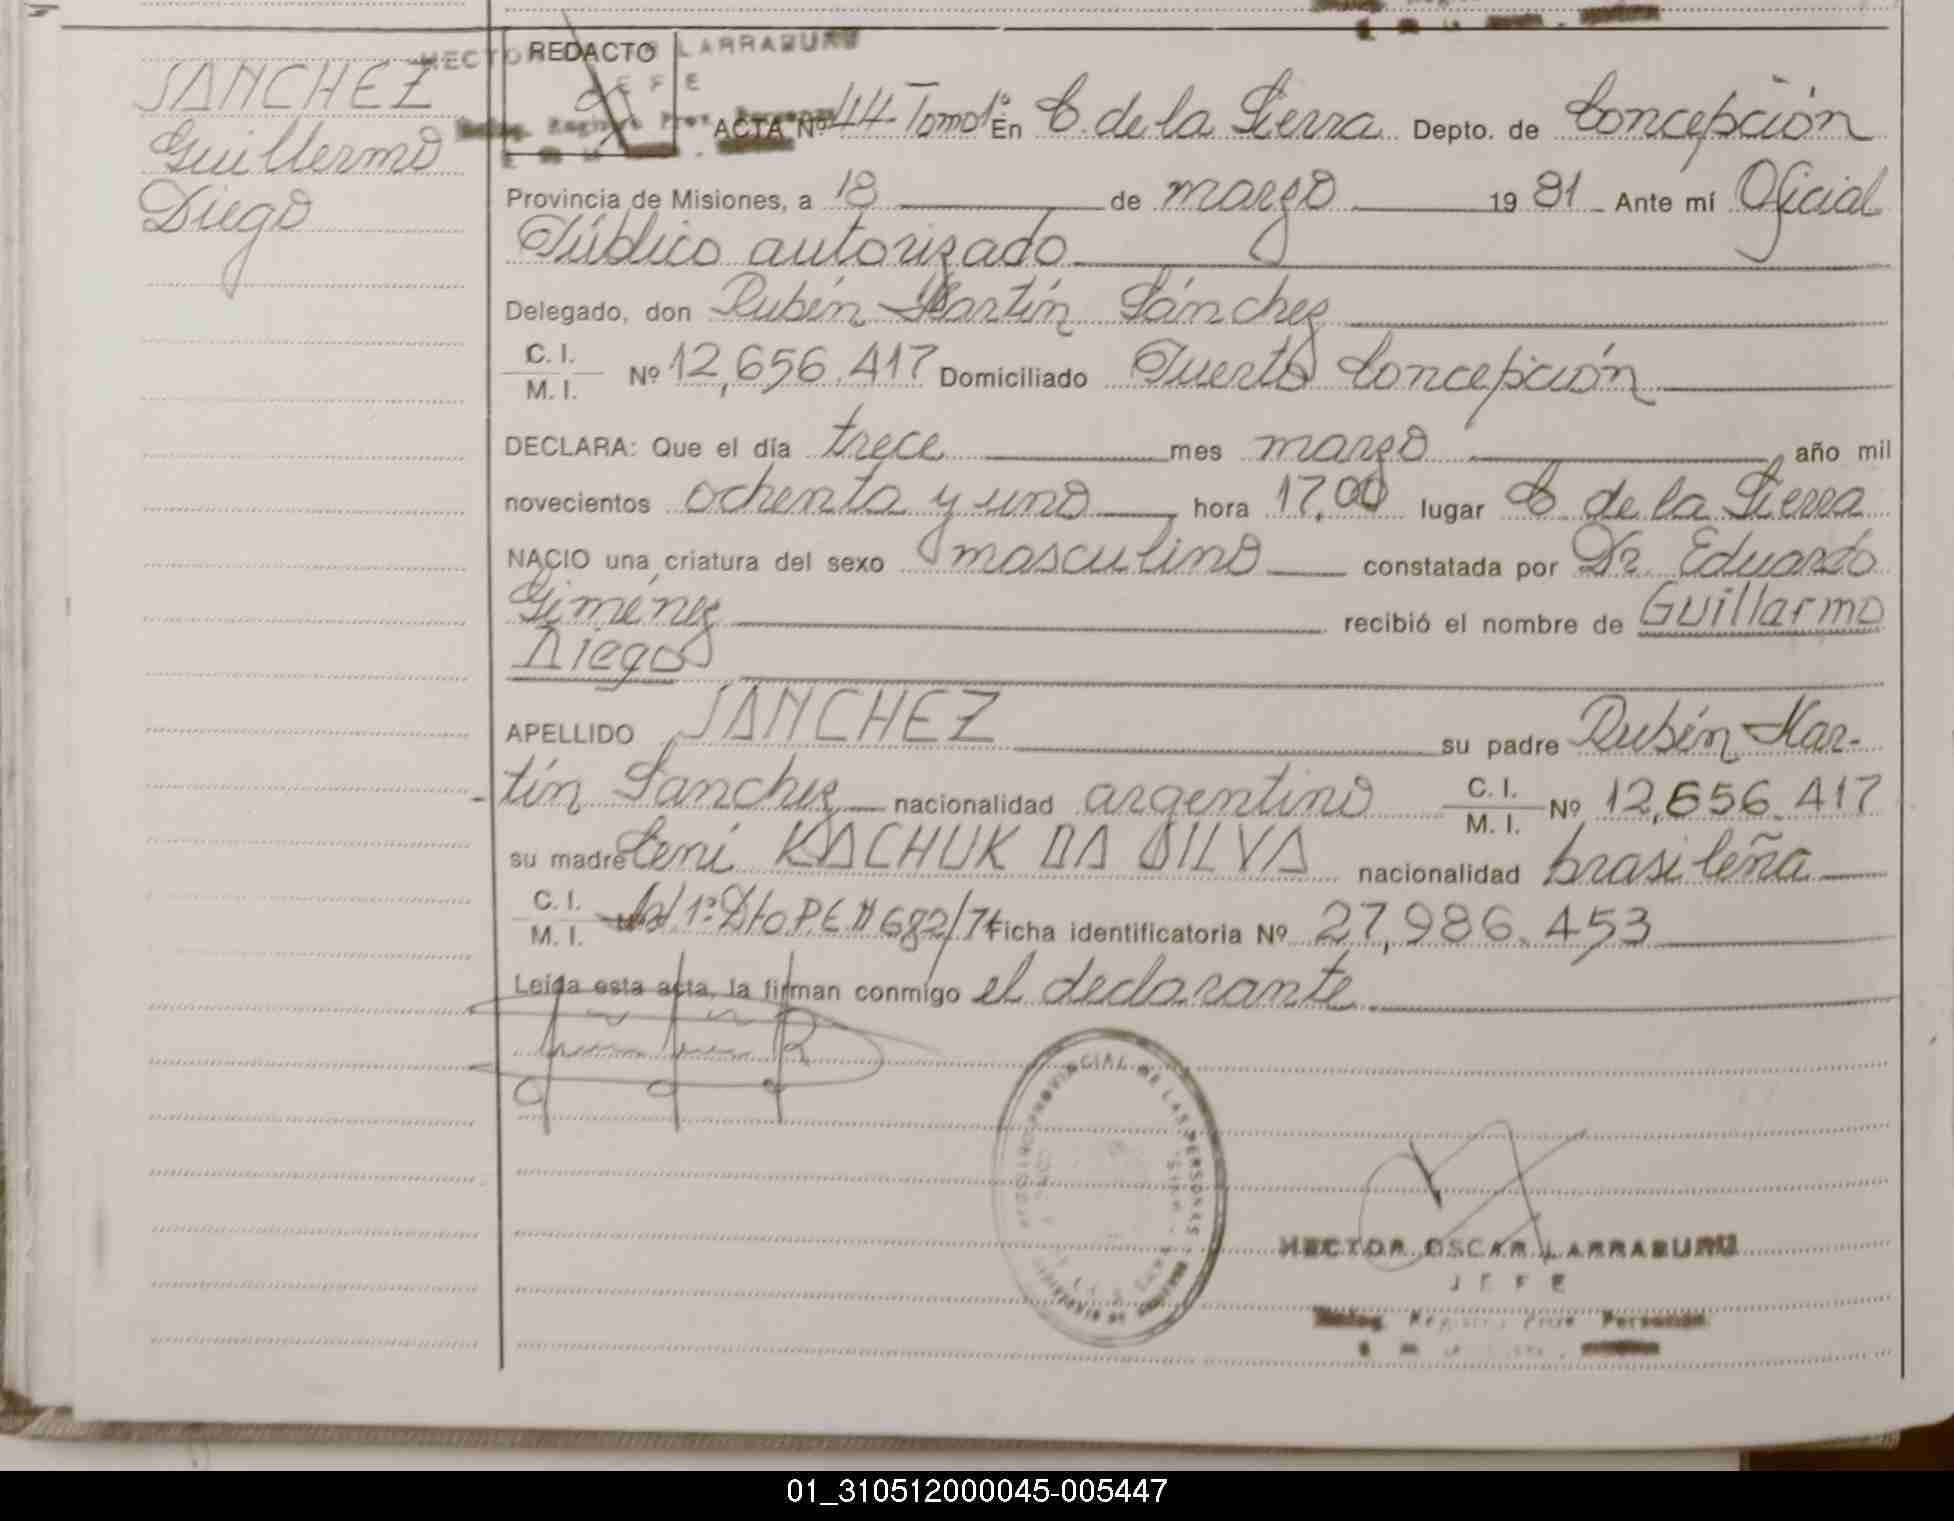 SANCHEZ
Guillermo
Diego
HECTOR LARRABURU
REDACTO
JEFE
ACTA Nº 44 Tomo 1º En C. de la Sierra Depto. de Concepción
Provincia de Misiones, a 18 de marzo 1981 Ante mí Oficial
Público autorizado
Delegado, don Rubén Martín Sánchez
C. I.
M. I. Nº 12,656.417 Domiciliado Puerto Concepción
DECLARA: Que el día trece mes marzo, año mil
novecientos ochenta y uno hora 17,00 lugar C de la Sierra
NACIO una criatura del sexo masculino constatada por Dr. Eduardo
Giménez recibió el nombre de Guillarmo
Diego
APELLIDO SANCHEZ su padre Rubén Mar-
tín Sanchez nacionalidad argentino C. I. M. I. Nº 12,656.417
su madre Leni KACHUK DA SILVA nacionalidad brasileña
C. I.
M. I. 1º Dto P.E. Nº 682/7 Ficha identificatoria Nº 27,986.453
Leída esta acta, la firman conmigo el declarante
PROVINCIAL DE LAS PERSONAS
HECTOR OSCAR LARRABURU
JEFE
Deleg. Registro Prov. Personas
01_310512000045-005447